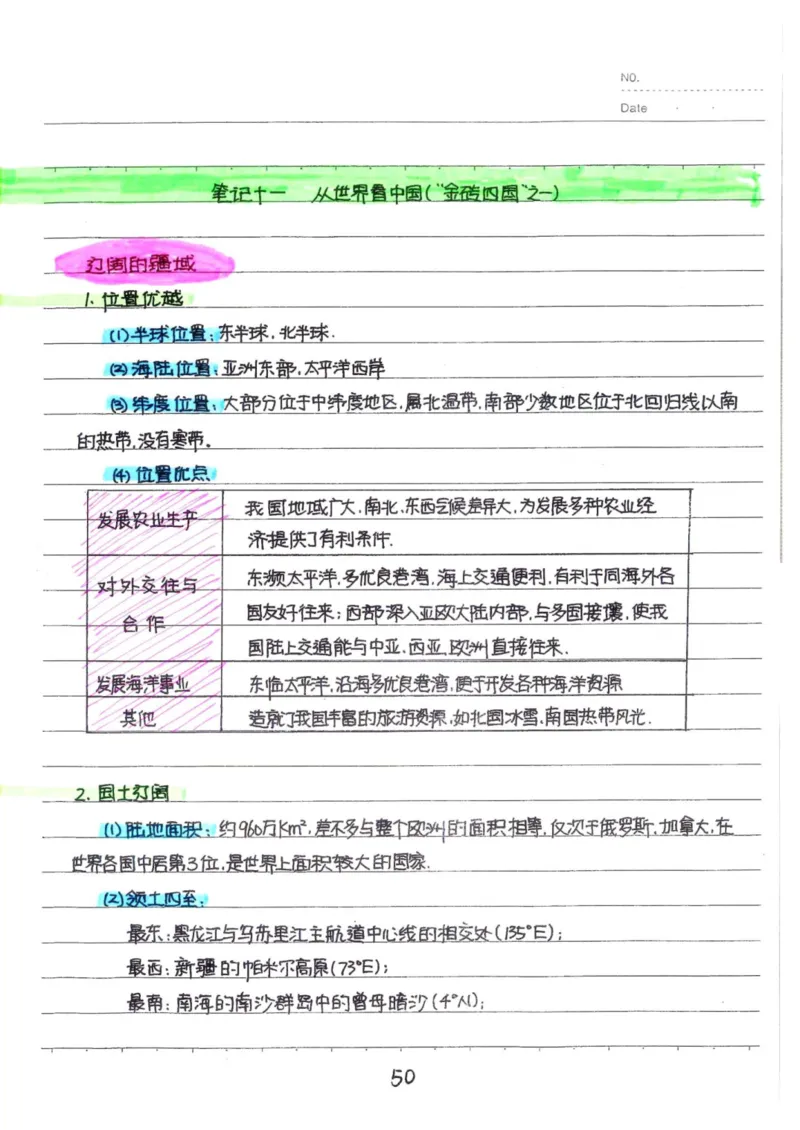 NO.
Date
笔记十一 从世界看中国("金砖四国"之一)
辽阔的疆域
1. 位置优越
(1)半球位置:东半球,北半球.
(2)海陆位置:亚洲东部,太平洋西岸
(3)纬度位置:大部分位于中纬度地区,属北温带,南部少数地区位于北回归线以南
的热带,没有寒带。
(4)位置优点
发展农业生产 我国地域广大,南北、东西气候差异大,为发展多种农业经
济提供了有利条件.
对外交往与 东濒太平洋,多优良港湾,海上交通便利,有利于同海外各
合作 国友好往来;西部深入亚欧大陆内部,与多国接壤,使我
国陆上交通能与中亚、西亚、欧洲直接往来.
发展海洋事业 东临太平洋,沿海多优良港湾,便于开发各种海洋资源
其他 造就了我国丰富的旅游资源,如北国冰雪,南国热带风光.
2. 国土辽阔
(1)陆地面积:约960万km²,差不多与整个欧洲的面积相等,仅次于俄罗斯、加拿大,在
世界各国中居第3位,是世界上面积较大的国家.
(2)领土四至:
最东:黑龙江与乌苏里江主航道中心线的相交处(135°E);
最西:新疆的帕米尔高原(73°E);
最南:南海的南沙群岛中的曾母暗沙(4°N);
50